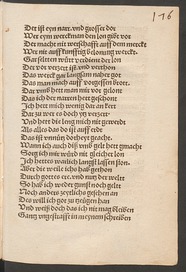 176
Der ist eyn narr vnd grosser dor
Wer eym werckman den lon gibt vor
Der macht nit werschafft auff dem merckt
Wer nit auff künfftig belonung werckt
Gar selten würt verdient der lon
Der vor verzert ist vnd verthon
Das werck gar langsam naher got
Das man macht auff vorgessen brott
Dar vmb hett man mir vor gelont
Das ich der narren hett geschont
Ich hett mich wenig dar an kert
Dar zu wer es doch yetz verzert
Vnd hett die leng mich nit gewert
Als alles das do ist auff erdt
Das ist vnnütz dorheyt geacht
Wann ich auch diß vmb gelt hett gmacht
Sorg ich mir würd nit gleicher lon
Ich hettes warlich langst lassen ston
Aber die weil ich das hab gthon
Durch gottes ere vnd nutz der welt
So hab ich weder gunst noch gelt
Noch anders zeytlichs gesehen an
Des will ich got zu zeügen han
Vnd weiß doch das ich nit mag bleiben
Gantz vngestrafft in meynem schreiben